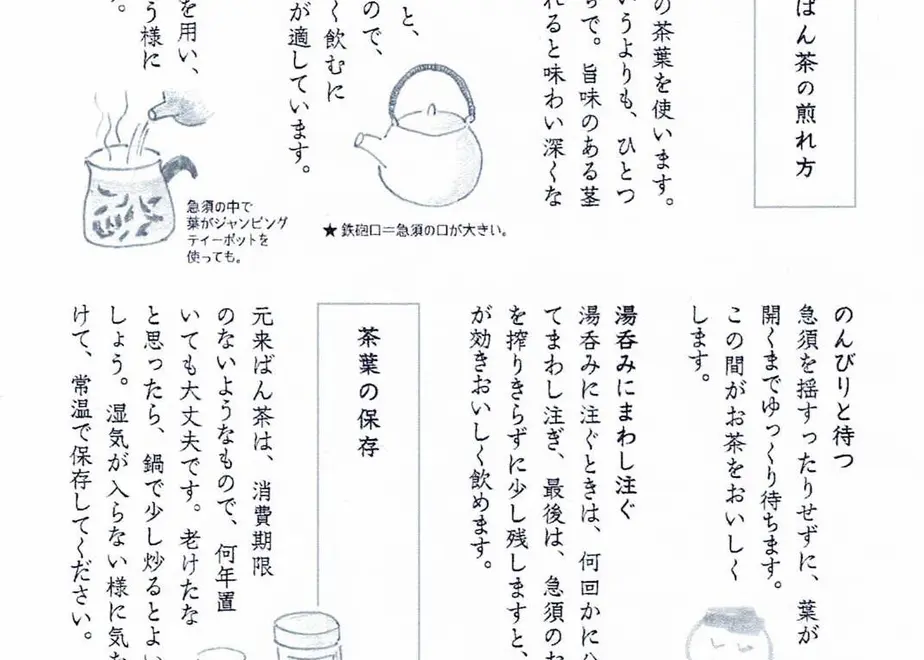 ばん茶の煎れ方
の茶葉を使います。
いうよりも、ひとつ
で。旨味のある茎
れると味わい深くな
と、
ので、
く飲むに
が適しています。
★鉄砲口=急須の口が大きい。
を用い、
う様に
。
急須の中で
葉がジャンピング
ティーポットを
使っても。
のんびりと待つ
急須を揺すったりせずに、葉が
開くまでゆっくり待ちます。
この間がお茶をおいしく
します。
湯呑みにまわし注ぐ
湯呑みに注ぐときは、何回かに
てまわし注ぎ、最後は、急須の
を搾りきらずに少し残しますと、
が効きおいしく飲めます。
茶葉の保存
元来ばん茶は、消費期限
のないようなもので、何年置
いても大丈夫です。老けたな
と思ったら、鍋で少し炒るとよい
しょう。湿気が入らない様に気
けて、常温で保存してください。